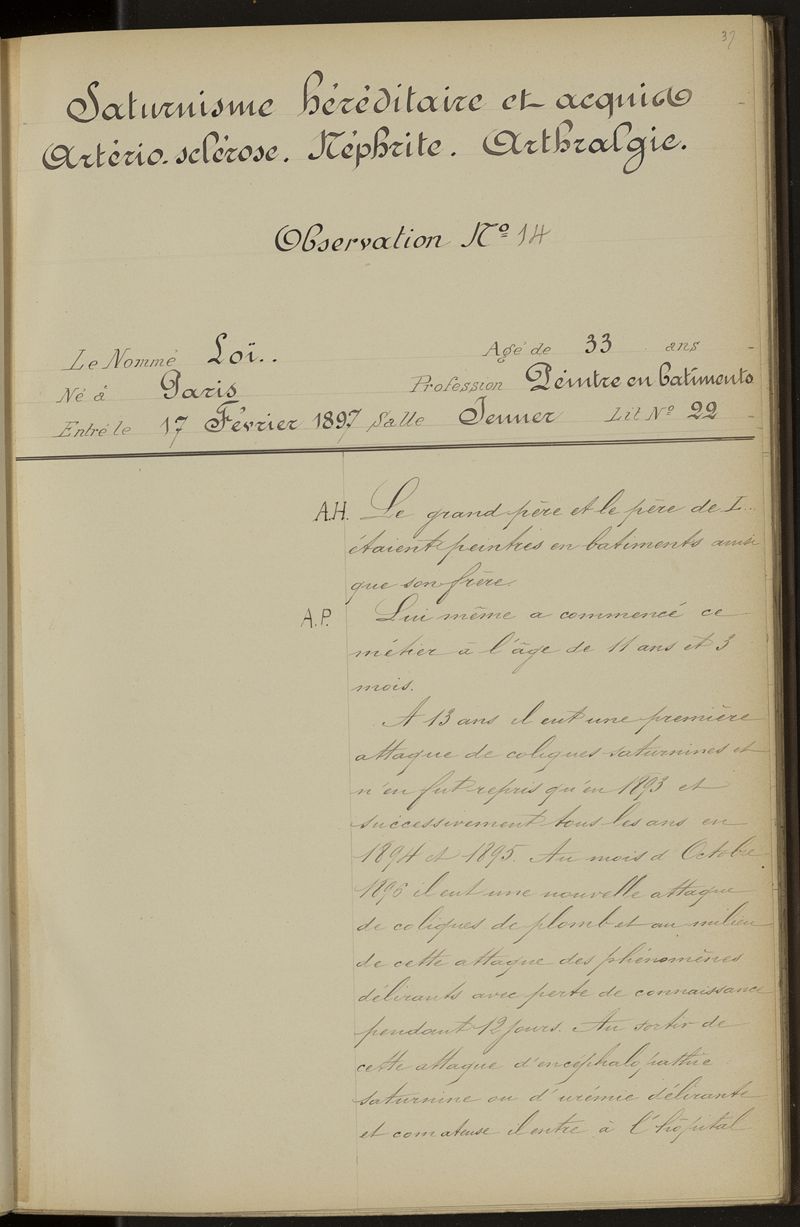 37
Saturnisme héréditaire et acquis
Artério-sclérose. Néphrite. Arthralgie.
Observation Nº 14
Le Nommé Loï.. Agé de 33 ans
Né à Paris Profession Peintre en batiments
Entré le 17 Février 1897 Salle Jenner Lit Nº 22
A.H. Le grand père et le père de L...
étaient peintres en batiments ainsi
que son frère.
A.P. Lui même a commencé ce
métier à l'âge de 11 ans et 3
mois.
A 13 ans il eut une première
attaque de coliques saturnines et
n'en fut repris qu'en 1893 et
successivement tous les ans en
1894 et 1895. Au mois d'Octobre
1896 il eut une nouvelle attaque
de coliques de plomb et au milieu
de cette attaque des phénomènes
délirants avec perte de connaissance
pendant 12 jours. Au sortir de
cette attaque d'encéphalopathie
saturnine ou d'urémie délirante
et comateuse il entre à l'hôpital